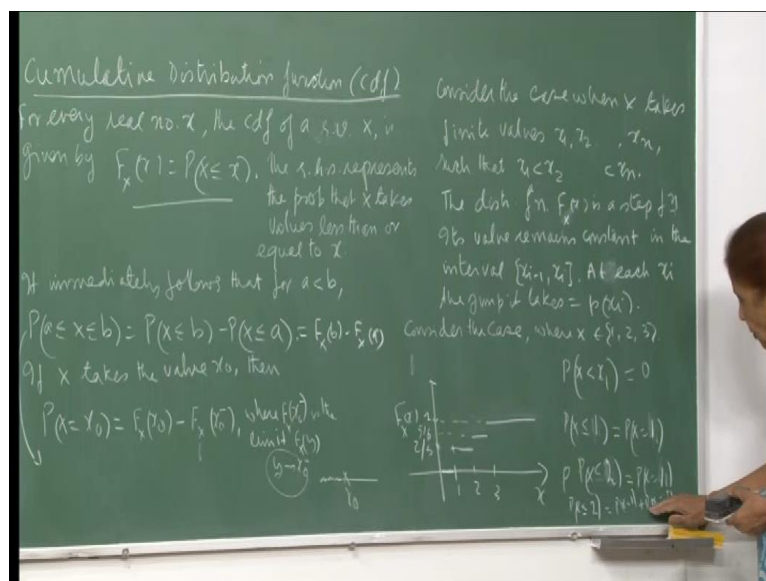 Cumulative Distribution function (cdf)
For every real no. x, the cdf of a r.v. X, is
given by F_X(x) = P(X ≤ x). The r.h.s. represents
the prob that X takes
values less than or
equal to x.
It immediately follows that for a<b,
P(a ≤ X ≤ b) = P(X ≤ b) - P(X ≤ a) = F_X(b) - F_X(a)
If X takes the value x0, then
P(X = x0) = F_X(x0) - F_X(x0^-), where F(x0^-) is the
limit F_X(y)
y→x0^-
x0
Consider the case when X takes
finite values x1, x2 . , xn,
such that x1 < x2 < xn.
The dist. fn. F_X(x) is a step fn
Its value remains constant in the
interval [xi-1, xi]. At each xi
the jump it takes = p(xi).
Consider the case, where X ∈ {1, 2, 3}.
F_X(x) 1
5/6
2/3
1 2 3 x
P(X < x1) = 0
P(X ≤ 1) = P(X = 1)
P(X ≤ 2) = P(X = 1)
P(X ≤ 2) = P(X = 1) +